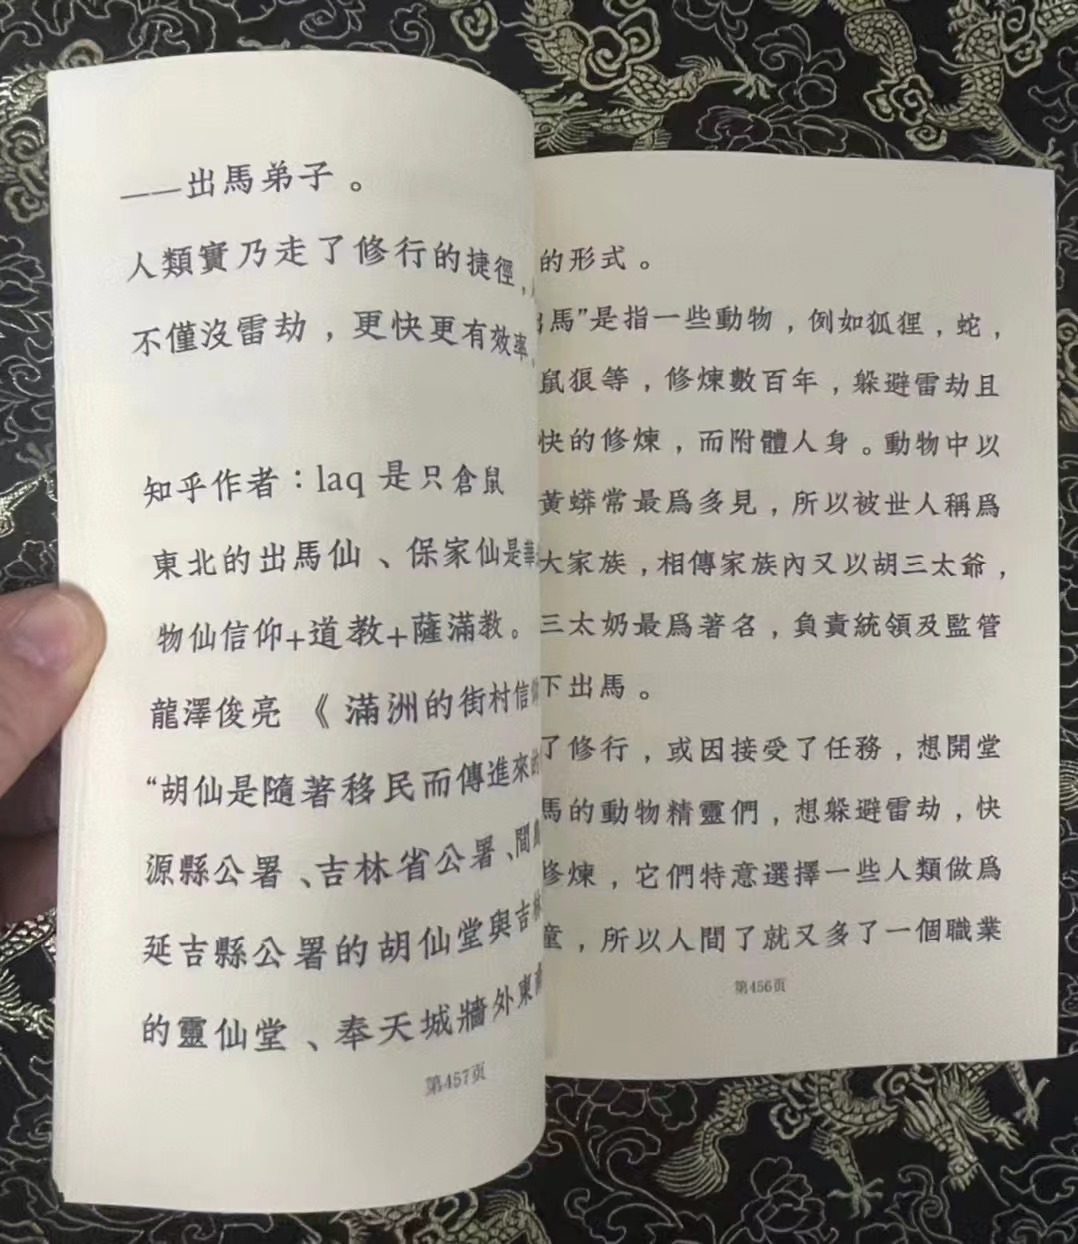 的形式。
馬”是指一些動物，例如狐狸，蛇，
鼠狼等，修煉數百年，躲避雷劫且
快的修煉，而附體人身。動物中以
黃蟒常最爲多見，所以被世人稱爲
大家族，相傳家族內又以胡三太爺，
三太奶最爲著名，負責統領及監管
下出馬。
了修行，或因接受了任務，想開堂
馬的動物精靈們，想躲避雷劫，快
修煉，它們特意選擇一些人類做爲
童，所以人間了就又多了一個職業
第456页
——出馬弟子。
人類實乃走了修行的捷徑，
不僅沒雷劫，更快更有效率。
知乎作者：laq 是只倉鼠
東北的出馬仙、保家仙是華
物仙信仰+道教+薩滿教。
龍澤俊亮 《滿洲的街村信仰
“胡仙是隨著移民而傳進來的
源縣公署、吉林省公署、間島
延吉縣公署的胡仙堂與吉林
的靈仙堂、奉天城牆外東南
第457页